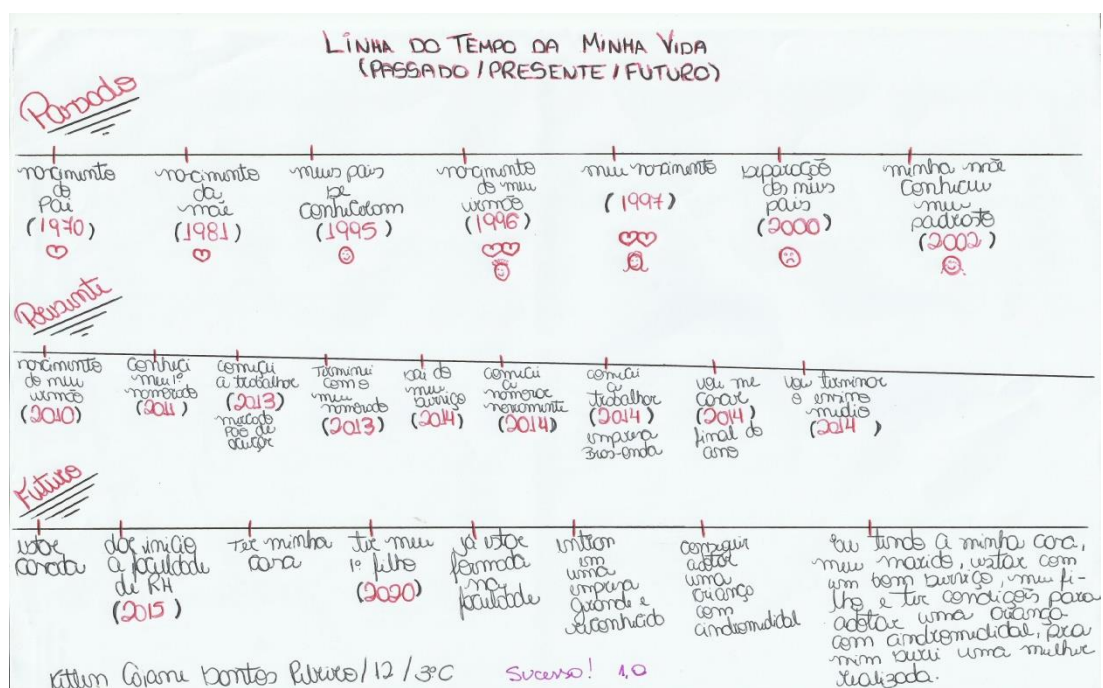 LINHA DO TEMPO DA MINHA VIDA
(PASSADO / PRESENTE / FUTURO)
Passado
nascimento
do
Pai
(1970)
nascimento
da
mãe
(1981)
meus pais
se
conheceram
(1995)
nascimento
do meu
irmão
(1996)
meu nascimento
(1997)
separação
dos meus
pais
(2000)
minha mãe
conheceu
meu
padrasto
(2002)
Presente
nascimento
do meu
irmão
(2010)
Conheci
meu 1º
namorado
(2011)
comecei
a trabalhar
(2013)
mercado
Pão de
açúcar
Terminei
com o
meu
namorado
(2013)
sai do
meu
serviço
(2014)
comecei
a
namorar
novamente
(2014)
comecei
a
trabalhar
(2014)
empresa
vou me
casar
(2014)
final do
ano
vou terminar
o ensino
medio
(2014)
Futuro
estar
casada
dar inicio
a faculdade
de RH
(2015)
Ter minha
casa
ter meu
1º filho
(2020)
já estar
formada
na
faculdade
em
uma
empresa
grande e
reconhecida
conseguir
adotar
uma
criança
com
eu tendo a minha casa,
meu marido, estar com
um bom serviço, meu fi-
lho e ter condições para
adotar uma criança
com
mim serei uma mulher
realizada.
Ribeiro / 12 / 3ºC
Sucesso! 1,0